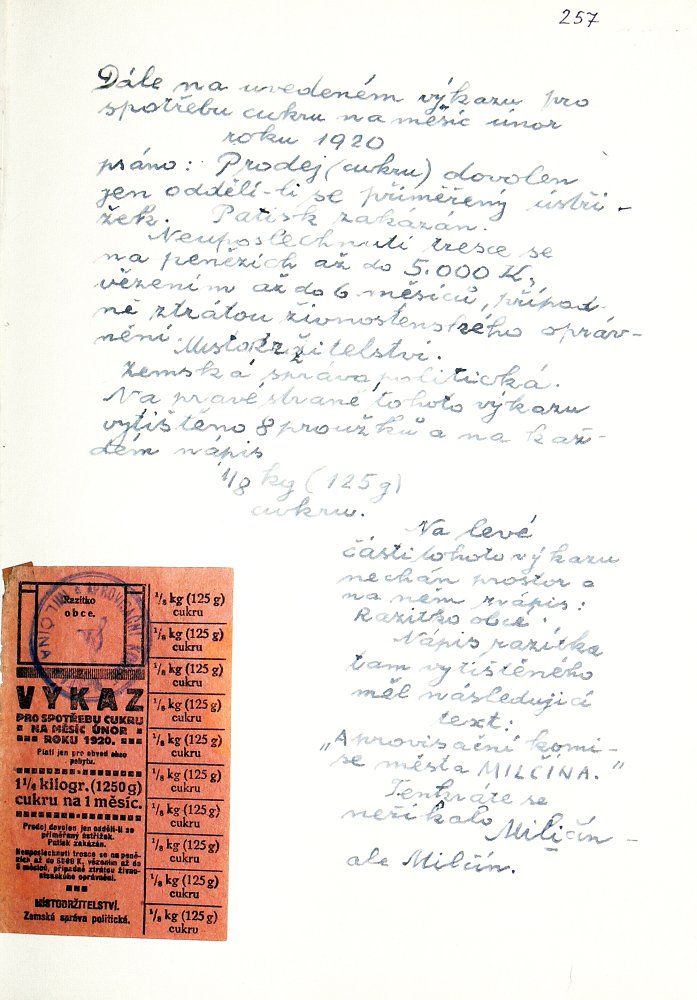 257
Dále na uvedeném výkazu pro
spotřebu cukru na měsíc únor
roku 1920
psáno: Prodej (cukru) dovolen
jen oddělí-li se přiměřený ústři-
žek. Patisk zakázán.
Neuposlechnutí tresce se
na penězích až do 5.000 K,
vězením až do 6 měsíců, případ-
ně ztrátou živnostenského opráv-
nění. Místodržitelství.
Zemská správa politická.
Na pravé straně tohoto výkazu
vytištěno 8 proužků a na kaž-
dém nápis
1/8 kg (125g)
cukru.
Na levé
části tohoto výkazu
nechán prostor a
na něm nápis:
Razítko obce.
Nápis razítka
tam vytištěného
měl následující
text:
„Aprovisační komi-
se města MILČÍNA."
Tenkráte se
neříkalo Miličín -
ale Milčín.
Razítko
obce.
VÝKAZ
PRO SPOTŘEBU CUKRU
NA MĚSÍC ÚNOR
ROKU 1920.
Platí jen pro obvod obce
pobytu.
1¼ kilogr. (1250 g)
cukru na 1 měsíc.
Prodej dovolen jen oddělí-li se
přiměřený ústřižek.
Patisk zakázán.
Neuposlechnutí tresce se na peně-
zích až do 5000 K, vězením až do
6 měsíců, případně ztrátou živno-
stenského oprávnění.
MÍSTODRŽITELSTVÍ.
Zemská správa politická.
1/8 kg (125 g)
cukru
1/8 kg (125 g)
cukru
1/8 kg (125 g)
cukru
1/8 kg (125 g)
cukru
1/8 kg (125 g)
cukru
1/8 kg (125 g)
cukru
1/8 kg (125 g)
cukru
1/8 kg (125 g)
cukru
1/8 kg (125 g)
cukru
1/8 kg (125 g)
cukru